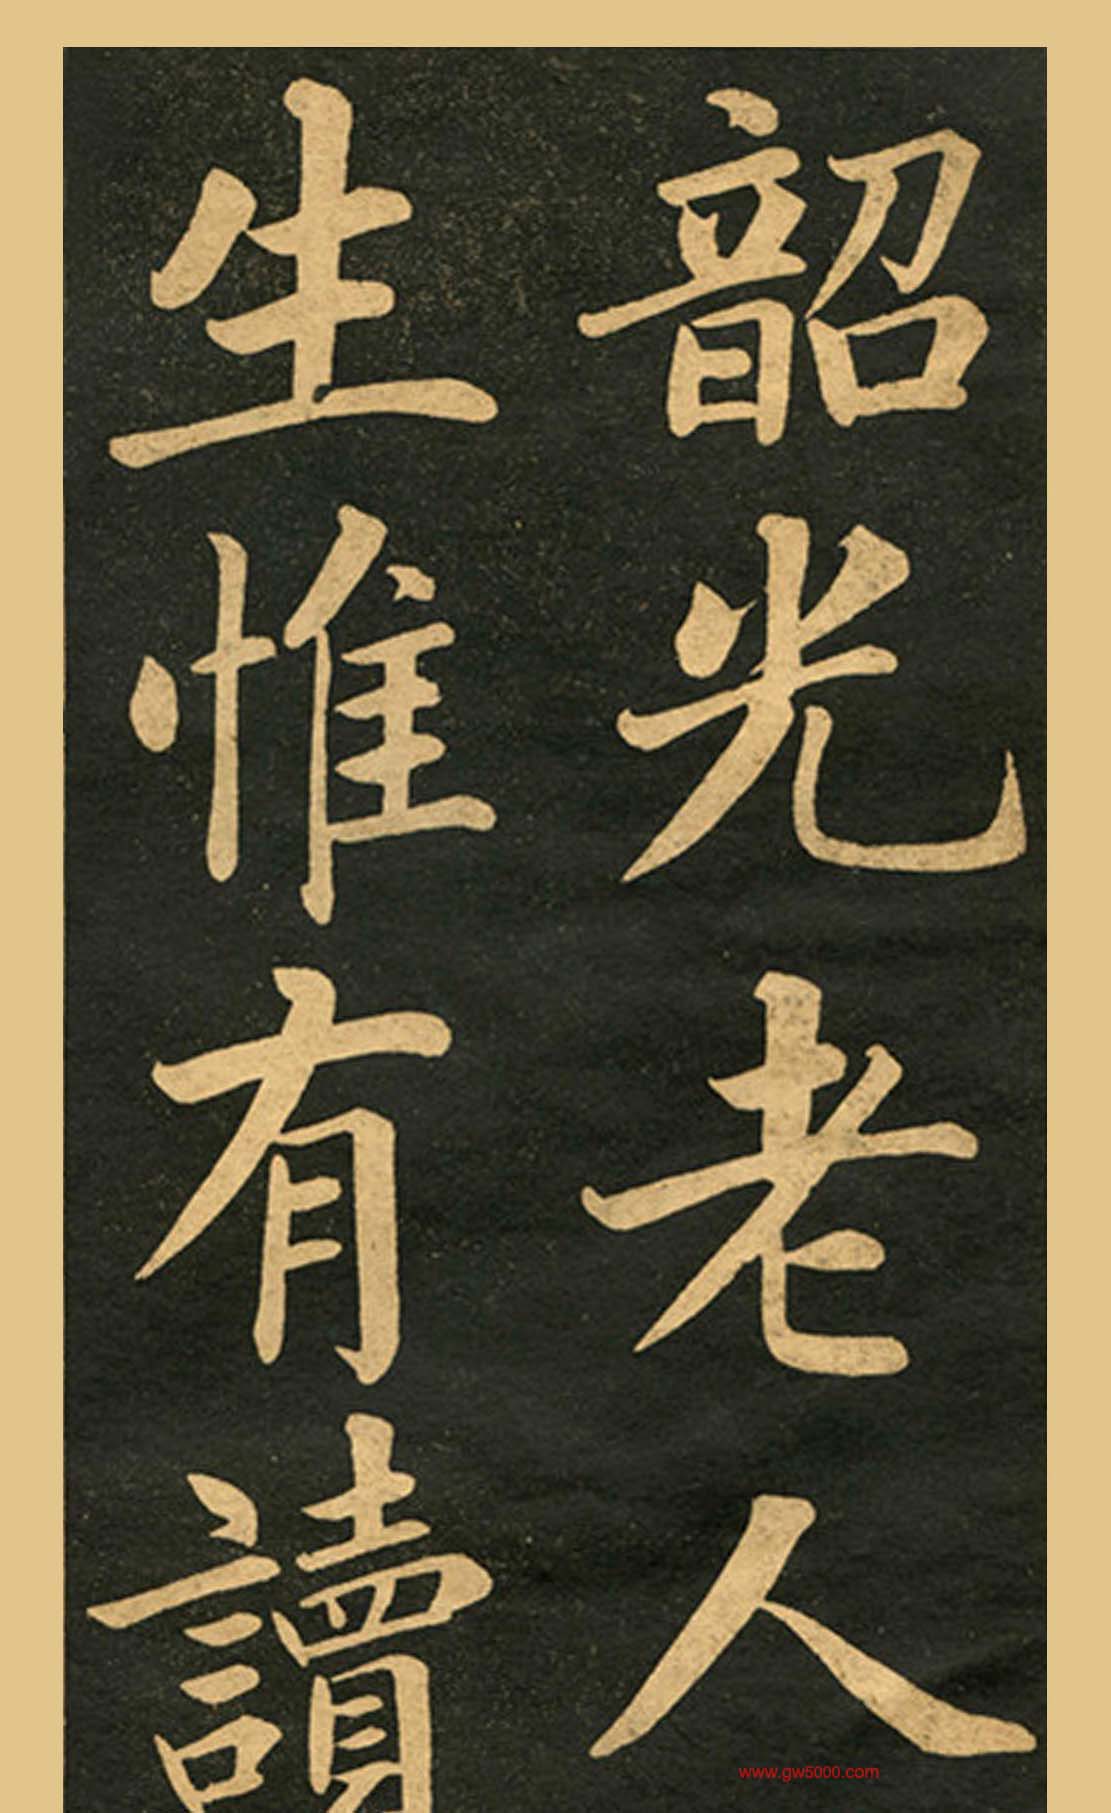 韶光老人
生惟有讀
www.gw5000.com